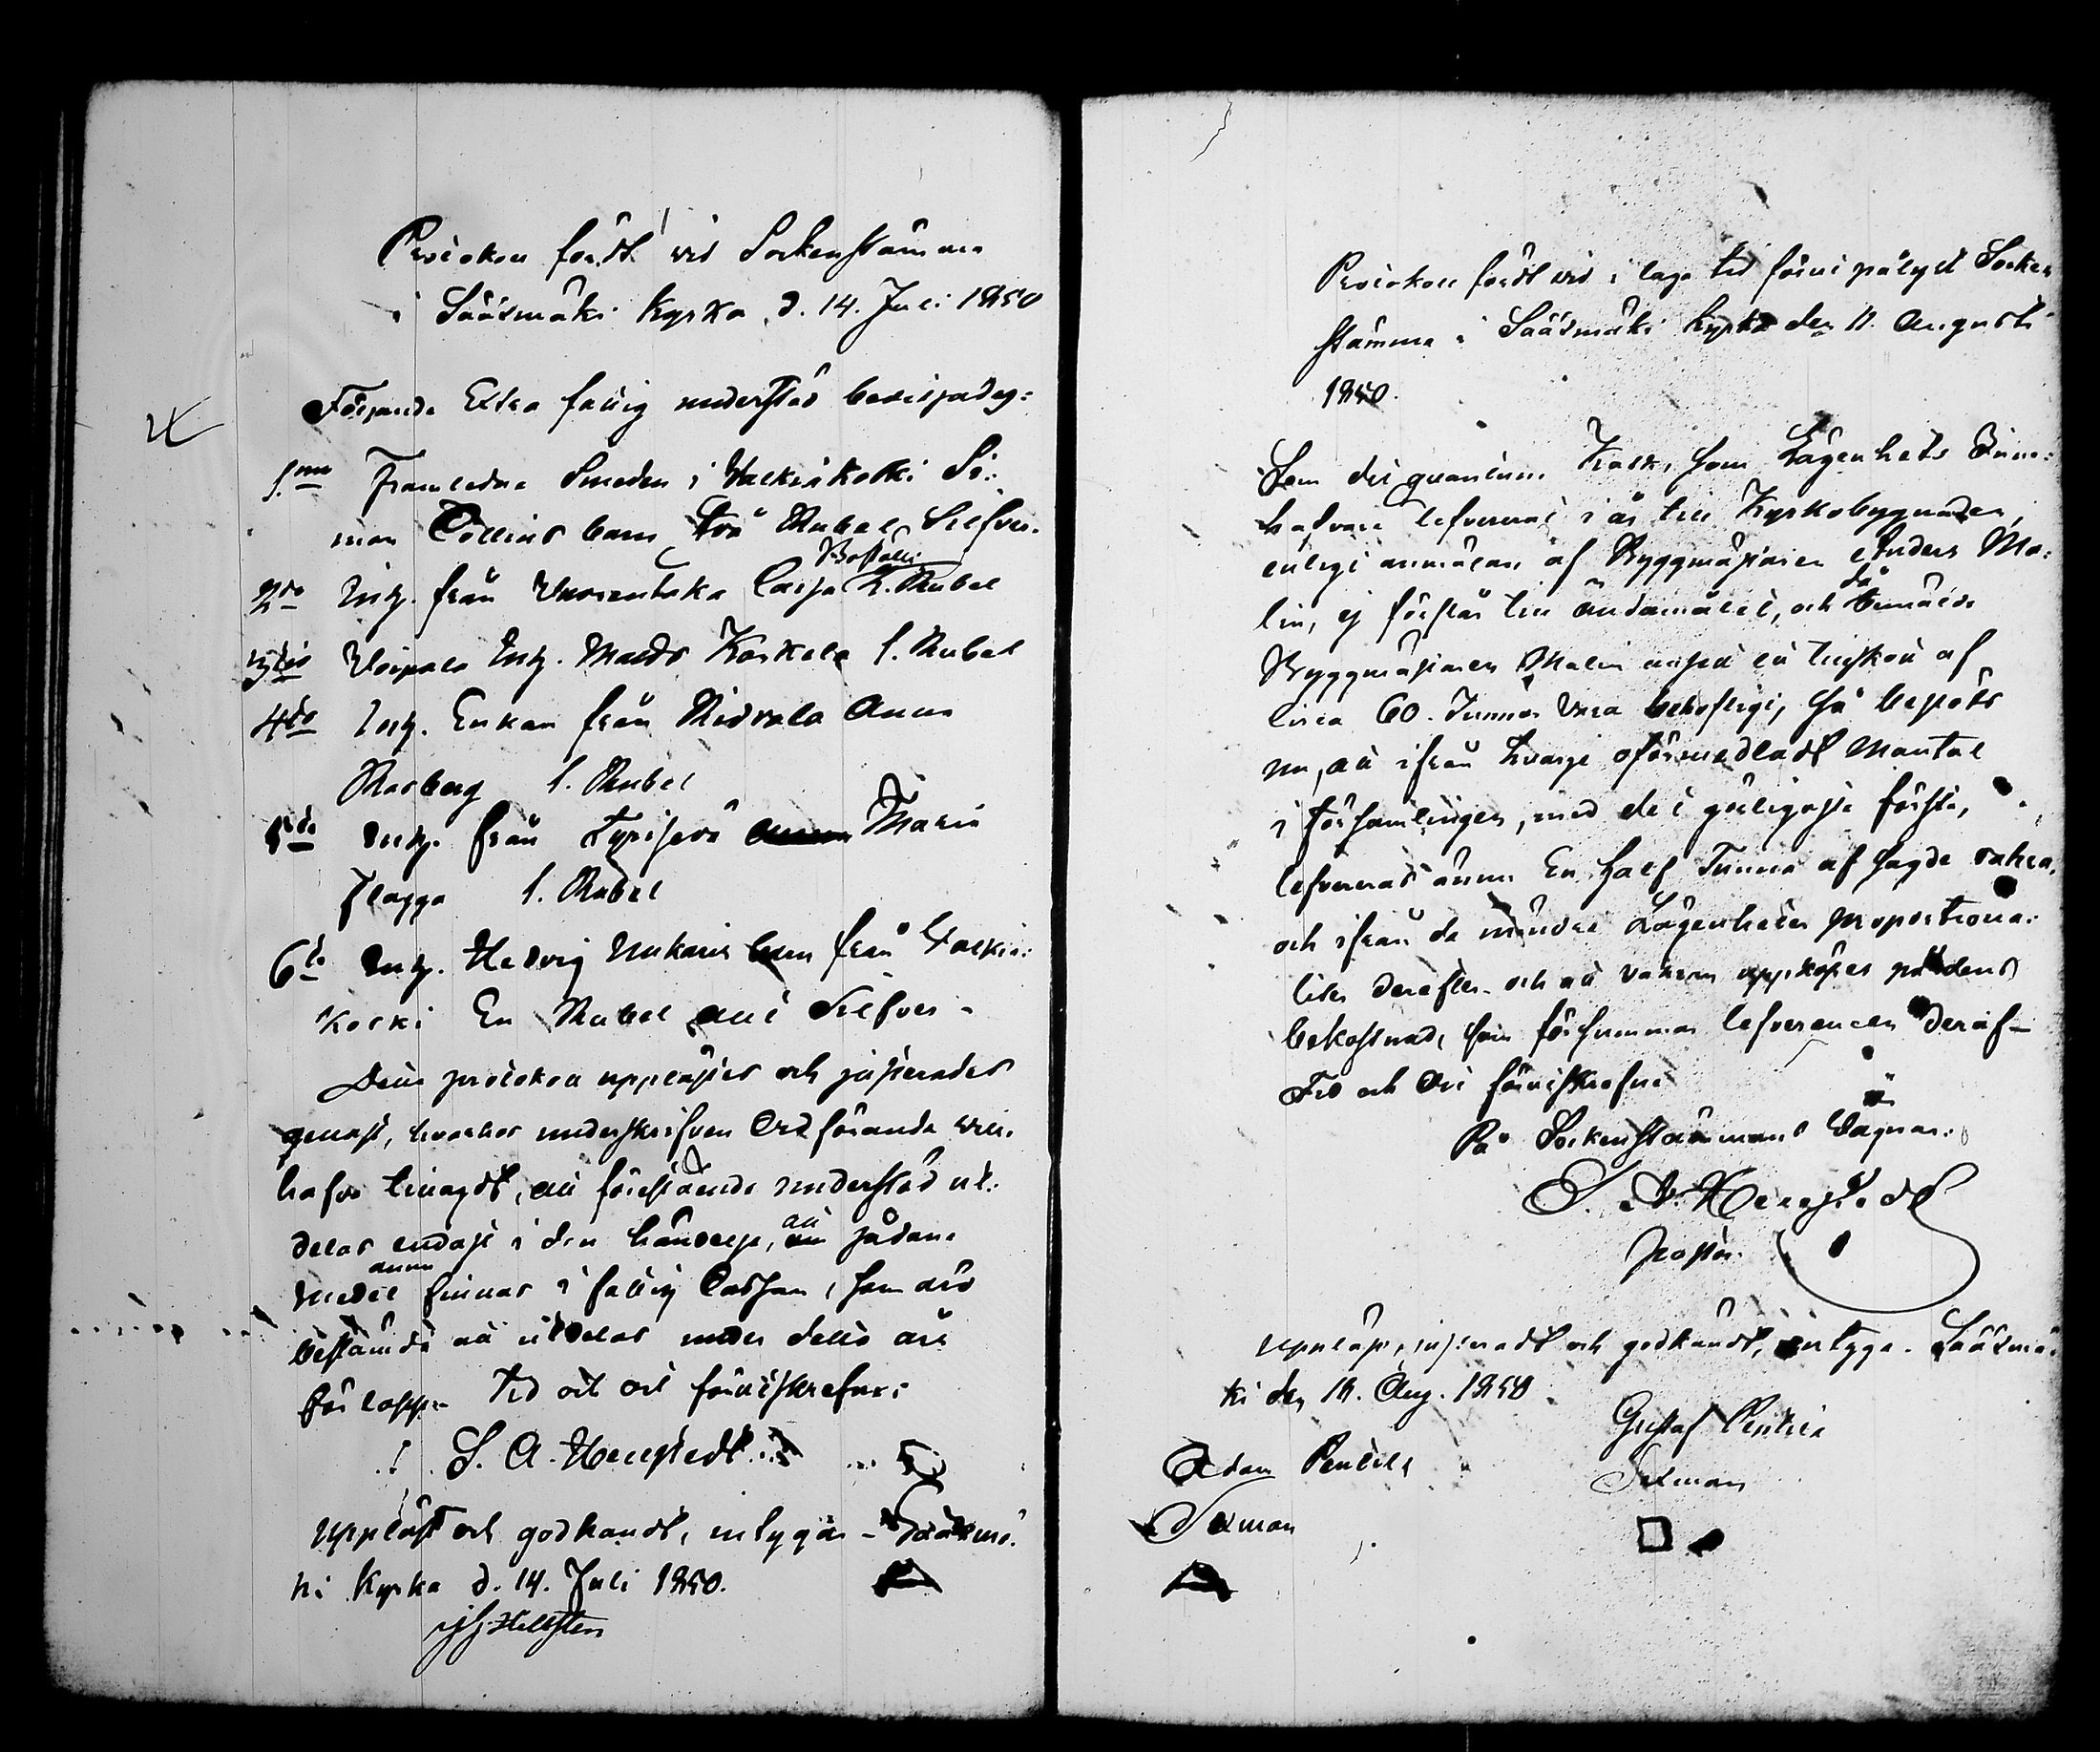 Protokoll fördt vid Sockenstämma
i Sääxmäki Kyrka, d. 14. Juli 1850
Följande Extra fattig understöd beviljades:
1mo Framledne Smeden i Valkiakoski Si:
mon Collins barn två Rubel Silfver.
2do Inh. från Uvorentaka Caisa Boställe 2. Rubel
3tio Voipala Inh. Matts Koskela 1. Rubel
4to Inh. Enkan från Ridvala Anna
Rosberg 1. Rubel
5to Inh. från Maria
Flagga 1. Rubel
6to Inh. Hedvig barn från Valkia:
koski En Rubel allt Silfver.
Detta protokoll upplästes och justerades
genast, hvarhos underskrifven Ordförande vill
hafva tillagdt, att förestående understöd ut:
delas endast i den händelse, att sådane
medel ännu finnas i fattig Cassan, som äro
bestämda att utdelas under detta års
förlopp. Tid och ort förutskrefne:
S. A. Hellstedt
Uppläst och godkändt, intygar - Sääxmä:
ki Kyrka d. 14. Juli 1850.
Hellsten
Protokoll fördt vid i laga tid förut pålyst Socken
stämma i Sääxmäki Kyrka den 11. Augusti
1850.
Som det quantum Kalk, som Lägenhets Inne:
hafvare lefvererat i år till Kyrkobyggnaden,
enligt anmälan af Byggmästaren Anders Ma:
lin, ej förslår till ändamålet, och då
Byggmästaren Malin ansett en tillskott af
circa 60. Tunnor vara behöfligt, så beslöts
nu, att ifrån hvarje oförmedladt Mantal
i församlingen, med det görligaste första,
lefvereras ännu En half Tunna af sagde vahra,
och ifrån de mindre Lägenheter proportiona:
liter derefter och att varan uppköpes på dens
bekostnad, som försummar lefverencen deraf -
Tid och Ort förutskrefne
På Sockenstämmans Vägnar:
S. A. Hellstedt
prost.
Uppläst, justeradt och godkändt, intyga. Sääxmä:
ki den 18. Aug. 1850.
Gustaf
Sexman
Adam Penttilä
Sexman